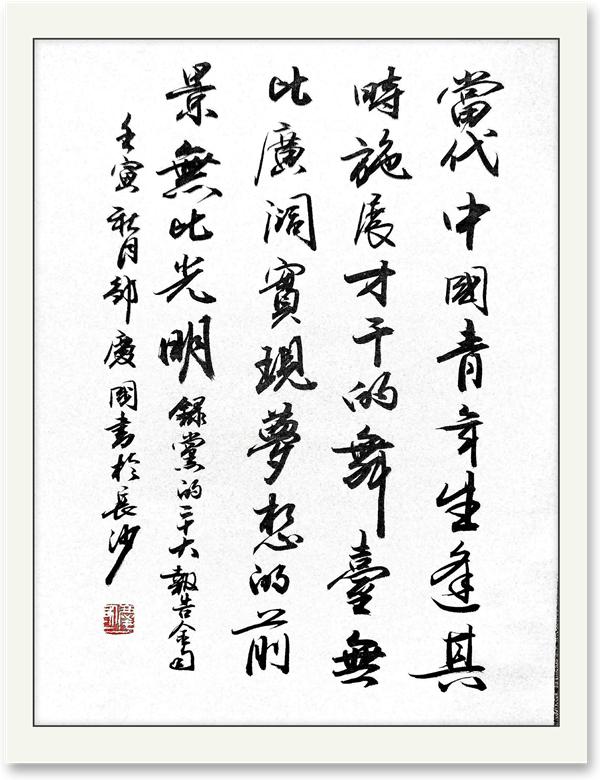 當代中國青年生逢其
時施展才干的舞臺無
比廣闊實現夢想的前
景無比光明 錄黨的二十大報告金句
壬寅秋月慶國書於長沙